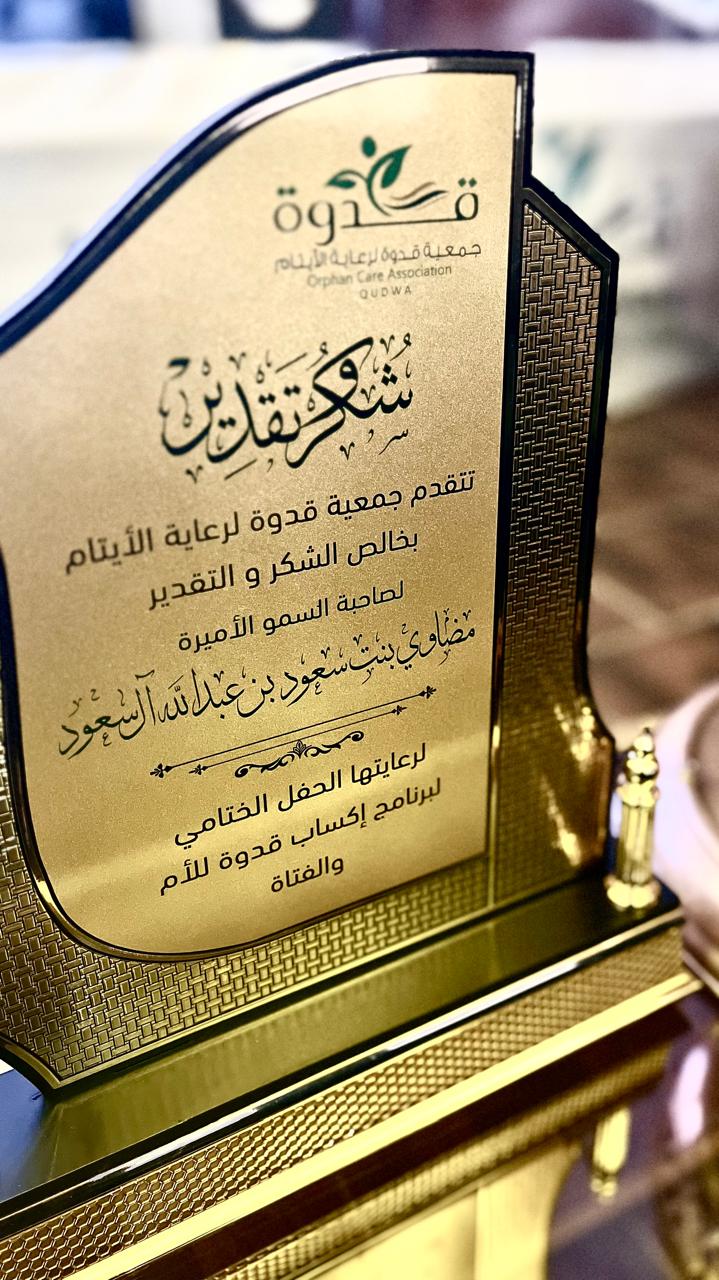 قدوة
جمعية قدوة لرعاية الأيتام
Orphan Care Association
QUDWA
شكر وتقدير
تتقدم جمعية قدوة لرعاية الأيتام
بخالص الشكر و التقدير
لصاحبة السمو الأميرة
مضاوي بنت سعود بن عبدالله آل سعود
لرعايتها الحفل الختامي
لبرنامج إكساب قدوة للأم
والفتاة